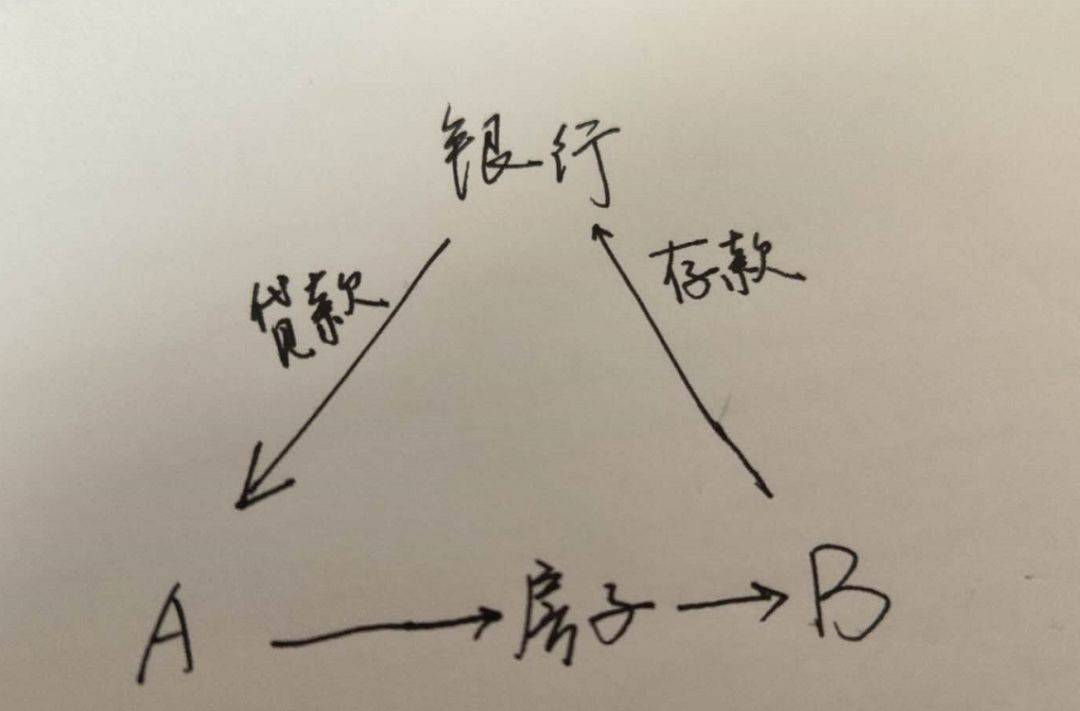 银行
贷款
存款
A
房子
B